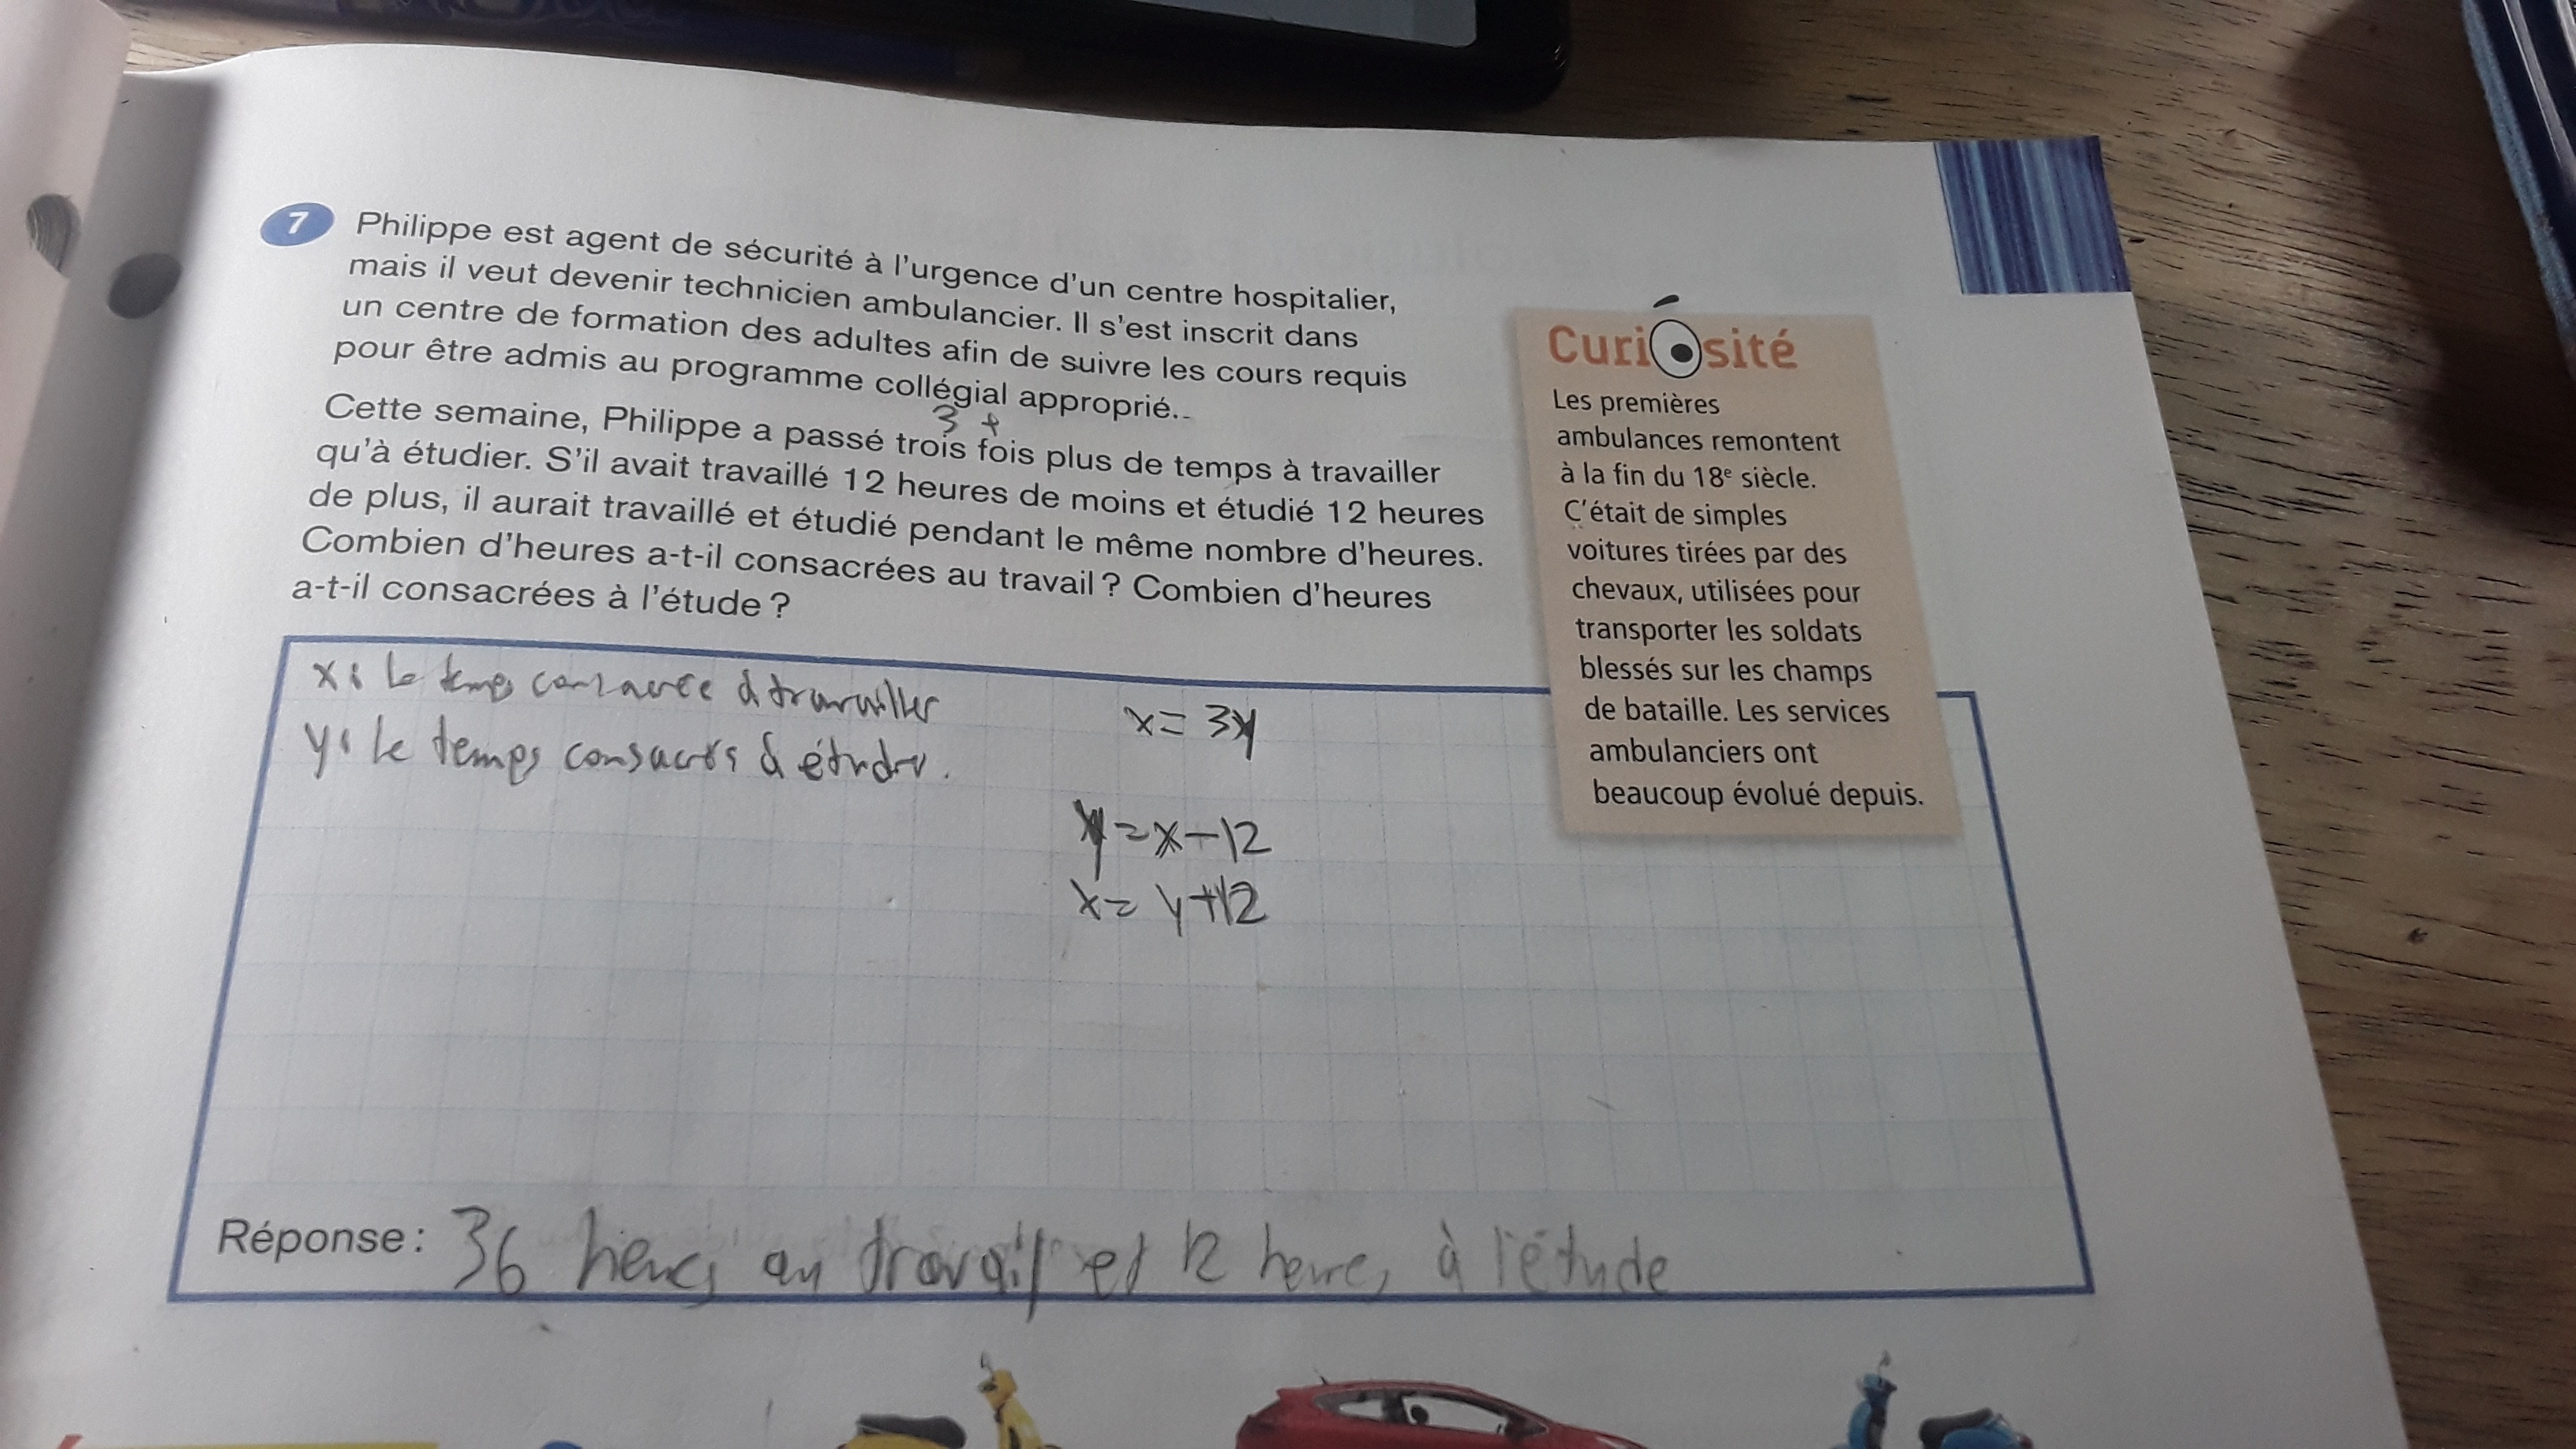 7 Philippe est agent de sécurité à l'urgence d'un centre hospitalier,
mais il veut devenir technicien ambulancier. Il s'est inscrit dans
un centre de formation des adultes afin de suivre les cours requis
pour être admis au programme collégial approprié.
3 +
Cette semaine, Philippe a passé trois fois plus de temps à travailler
qu'à étudier. S'il avait travaillé 12 heures de moins et étudié 12 heures
de plus, il aurait travaillé et étudié pendant le même nombre d'heures.
Combien d'heures a-t-il consacrées au travail ? Combien d'heures
a-t-il consacrées à l'étude ?
Curiosité
Les premières
ambulances remontent
à la fin du 18e siècle.
C'était de simples
voitures tirées par des
chevaux, utilisées pour
transporter les soldats
blessés sur les champs
de bataille. Les services
ambulanciers ont
beaucoup évolué depuis.
x: le temps consacrée à travailler
y: le temps consacrés à étudier.
x = 3y
y = x - 12
x = y + 12
Réponse : 36 heures au travail et 12 heures à l'étude